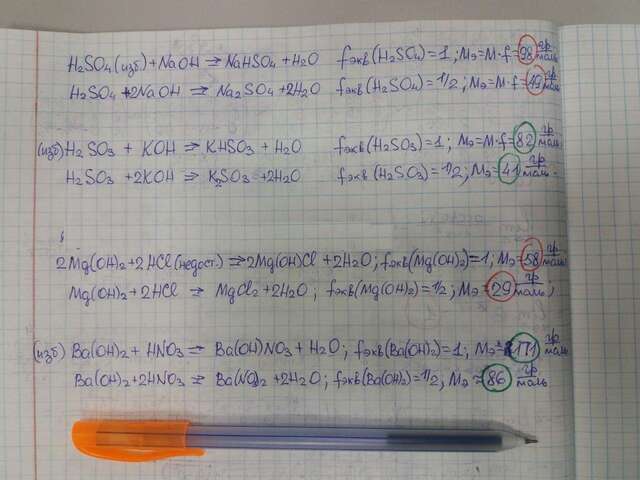 H₂SO₄(изб)+NaOH ⇒ NaHSO₄ + H₂O fэкв(H₂SO₄)=1; Mэ=M·f=98 гр/моль
H₂SO₄ + 2NaOH ⇒ Na₂SO₄ + 2H₂O fэкв(H₂SO₄)=1/2; Mэ=M·f=49 гр/моль
(изб) H₂SO₃ + KOH ⇒ KHSO₃ + H₂O fэкв(H₂SO₃)=1; Mэ=M·f=82 гр/моль
H₂SO₃ + 2KOH ⇒ K₂SO₃ + 2H₂O fэкв(H₂SO₃)=1/2; Mэ=41 гр/моль.
2Mg(OH)₂+2HCl(недост.) ⇒ 2Mg(OH)Cl + 2H₂O; fэкв(Mg(OH)₂)=1; Mэ=58 гр/моль
Mg(OH)₂+2HCl ⇒ MgCl₂ + 2H₂O; fэкв(Mg(OH)₂)=1/2; Mэ=29 гр/моль;
(изб) Ba(OH)₂ + HNO₃ ⇒ Ba(OH)NO₃ + H₂O; fэкв(Ba(OH)₂)=1; Mэ=171 гр/моль
Ba(OH)₂+2HNO₃ ⇒ Ba(NO₃)₂ + 2H₂O; fэкв(Ba(OH)₂)=1/2; Mэ≈86 гр/моль